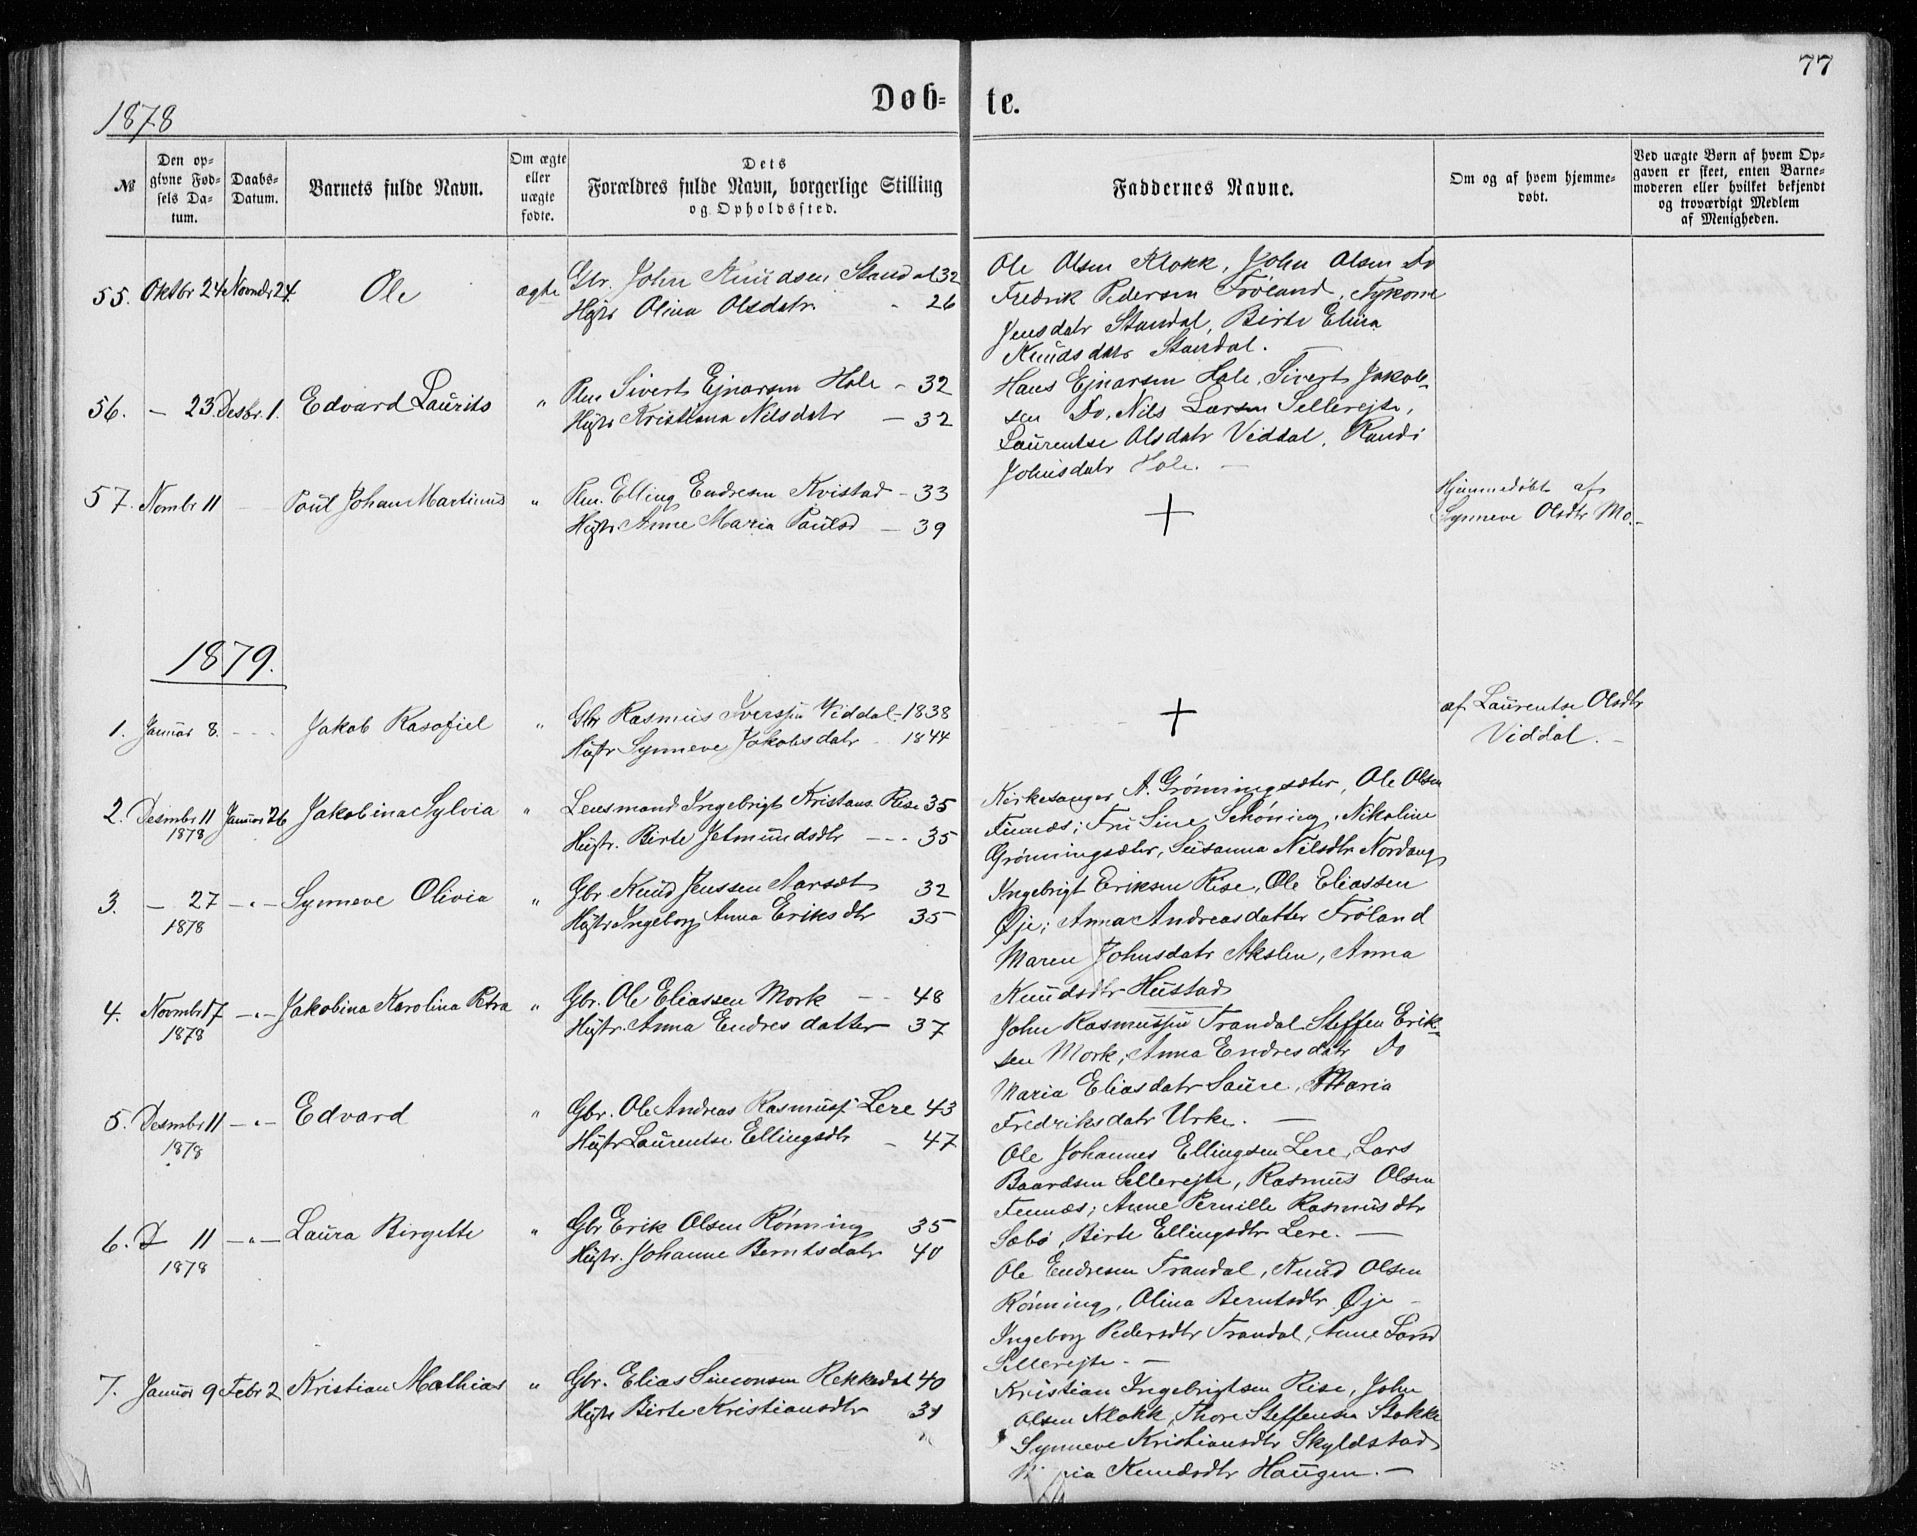 77
Døb- te.
1878
№
Den op-
givne Fød-
sels Da-
tum.
Daabs-
Datum.
Barnets fulde Navn.
Om ægte
eller
uægte
fødte.
Dets
Forældres fulde Navn, borgerlige Stilling
og Opholdssted.
Faddernes Navne.
Om og af hvem hjemme-
døbt.
Ved uægte Børn af hvem Op-
gaven er skeet, enten Barne-
moderen eller hvilket bekjendt
og troværdigt Medlem
af Menigheden.
55. Oktbr 24 Novmbr 24. Ole ægte Gbr. John Knudsen Standal 32
Hustr Olina Olsdatr. - 26
Ole Olsen Klokk, John Olsen Do
Fredrik Pedersen Frøland,
Jensdatr Standal, Birte Elina
Knudsdatr Standal.
56. - 23. Desbr. 1. Edvard Laurits " Plm Sivert Ejnarsen Hole - 32
Hustr Kristiana Nilsdatr - 32
Hans Ejnarsen Hole, Sivert Jakob-
sen Do, Nils Larsen Sellerejte,
Laurentse Olsdatr Viddal, Randi
Johnsdatr Hole. -
57. Novmbr 11 - Paul Johan Martinus " Plm. Elling Endresen Kvistad - 33
Hustr. Anne Maria Paulsd - 39
+
Hjemmedøbt af
Synneve Olsdtr Mo. -
1879.
1. Januar 8. - - - Jakob Rasofiel " Gbr Rasmus Iverssen Viddal - 1838
Hustr Synneve Jakobsdatr - 1844
+
af Laurentse Olsdtr
Viddal. -
2. Desmbr 11 Januar 26 Jakobina Sylvia " Lensmand Ingebrigt Kristians. Rise 35
1878
Hustr. Birte Jetmundsdtr - - - 35
Kirkesanger A. Grønningsæter, Ole Olsen
Finnes; Fru Sine Schøning, Nikoline
Grønningsæter, Susanna Nilsdtr Nordang
3. - 27 - " - Synneve Olivia " Gbr Knud Jenssen Aarset 32
1878
Hustr Ingeborg Anna Eriksdtr 35
Ingebrigt Eriksen Rise, Ole Eliassen
Øje; Anna Andreasdatter Frøland
Maren Johnsdatr Akslen, Anna
Knudsdtr Hustad
4. Novmbr 17 - " - Jakobina Karolina Petra " Gbr. Ole Eliassen Mork - - 48
1878
Hustr. Anna Endresdatter 37
John Rasmussen Trandal, Steffen Erik-
sen Mork, Anna Endresdatr Do
Maria Eliasdatr Saure, Maria
Fredriksdatr Urke. -
5. Desmbr 11 - " - Edvard " Gbr. Ole Andreas Rasmuss. Lere 43
1878
Hustr Laurentse Ellingsdtr - 47
Ole Johannes Ellingsen Lere, Lars
Baardsen Sellerejte, Rasmus Olsen
Finnes; Anne Pernille Rasmusdtr
Sæbø, Birte Ellingsdtr Lere. -
6. D 11 - " - Laura Birgitte " Gbr Erik Olsen Rønning 35
1878
Hustr. Johanne Berntsdatr 40
Ole Endresen Trandal, Knud Olsen
Rønning, Olina Berntsdtr Øje -
Ingeborg Pedersdtr Trandal, Anne Larsd
Sellerejte. -
7. Januar 9 Febr 2 Kristian Mathias " Gbr. Elias Simonsen Rekkedal 40
Hustr Birte Kristiansdtr 31
Kristian Ingebrigtsen Rise, John
Olsen Klokk, Thore Steffensen Stokke
Synneve Kristiansdtr Skyldstad
Knudsdtr Haugen. -